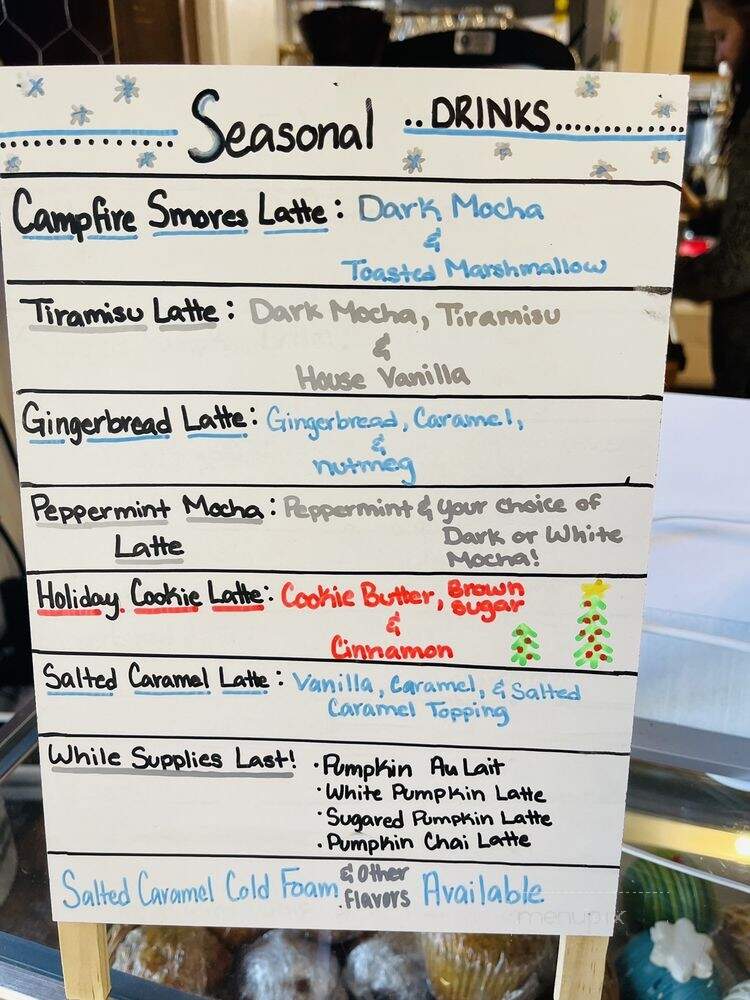 Seasonal ..DRINKS..........
Campfire Smores Latte: Dark Mocha
&
Toasted Marshmallow
Tiramisu Latte: Dark Mocha, Tiramisu
&
House Vanilla
Gingerbread Latte: Gingerbread, Caramel,
&
nutmeg
Peppermint Mocha: Peppermint & your choice of
Latte Dark or White
Mocha!
Holiday Cookie Latte: Cookie Butter, Brown
sugar
&
Cinnamon
Salted Caramel Latte: Vanilla, Caramel, & Salted
Caramel Topping
While Supplies Last! •Pumpkin Au Lait
•White Pumpkin Latte
•Sugared Pumpkin Latte
•Pumpkin Chai Latte
Salted Caramel Cold Foam & Other
flavors Available
menupix